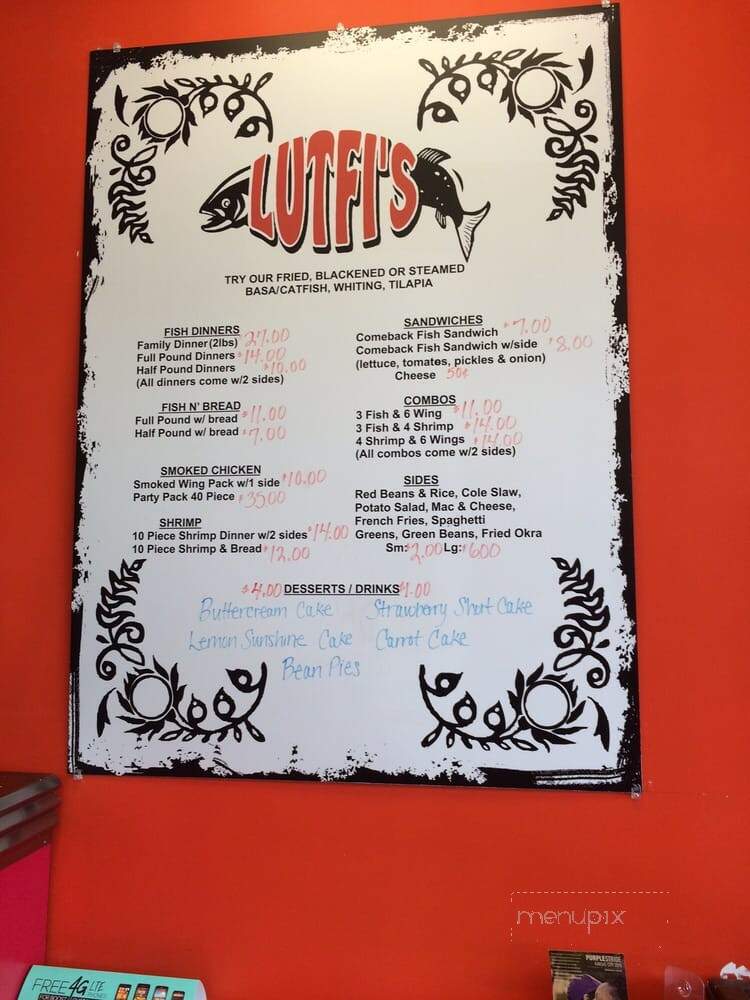 LUTFI'S
TRY OUR FRIED, BLACKENED OR STEAMED
BASA/CATFISH, WHITING, TILAPIA
FISH DINNERS
Family Dinner(2lbs) 27.00
Full Pound Dinners $14.00
Half Pound Dinners $10.00
(All dinners come w/2 sides)
FISH N' BREAD
Full Pound w/ bread $11.00
Half Pound w/ bread $7.00
SMOKED CHICKEN
Smoked Wing Pack w/1 side $10.00
Party Pack 40 Piece $3500
SHRIMP
10 Piece Shrimp Dinner w/2 sides $14.00
10 Piece Shrimp & Bread $12.00
SANDWICHES
Comeback Fish Sandwich $7.00
Comeback Fish Sandwich w/side $8.00
(lettuce, tomatoes, pickles & onion)
Cheese 50¢
COMBOS
3 Fish & 6 Wing $11.00
3 Fish & 4 Shrimp $14.00
4 Shrimp & 6 Wings $14.00
(All combos come w/2 sides)
SIDES
Red Beans & Rice, Cole Slaw,
Potato Salad, Mac & Cheese,
French Fries, Spaghetti
Greens, Green Beans, Fried Okra
Sm: $2.00 Lg: $600
$4.00 DESSERTS / DRINKS $1.00
Buttercream Cake Strawberry Short Cake
Lemon Sunshine Cake Carrot Cake
Bean Pies
menupix
FREE 4G LTE
PURPLESTRIDE